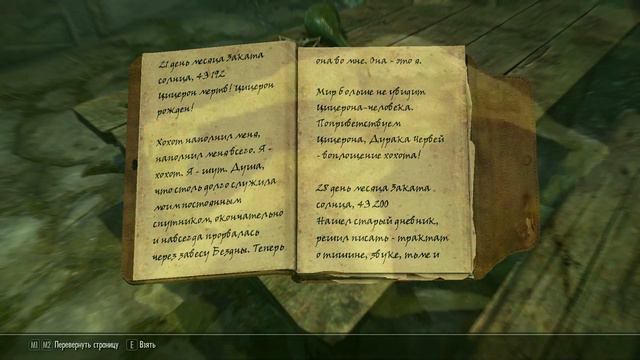 21 день месяца Заката
солнца, 4Э 192
Цицерон мертв! Цицерон
рожден!
Хохот наполнил меня,
наполнил меня всего. Я -
хохот. Я - шут. Душа,
что столь долго служила
моим постоянным
спутником, окончательно
и навсегда прорвалась
через завесу Бездны. Теперь
она во мне. Она - это я.
Мир больше не увидит
Цицерона-человека.
Поприветствуем
Цицерона, Дурака Червей
- воплощение хохота!
28 день месяца Заката
солнца, 4Э 200
Нашел старый дневник,
решил писать - трактат
о тишине, звуке, тьме и
M1 M2 Перевернуть страницу E Взять